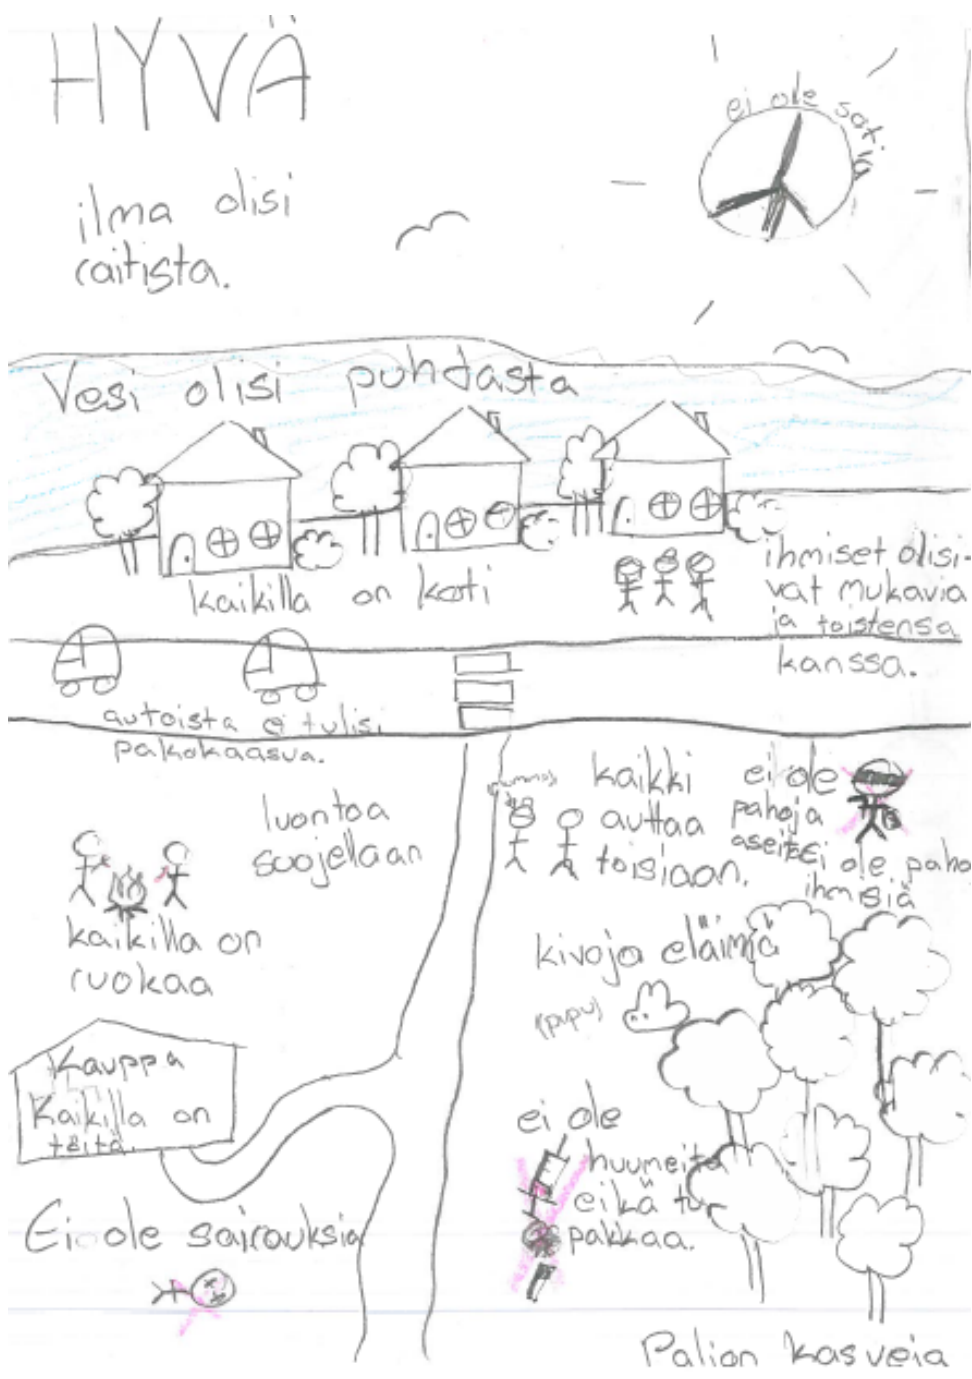 HYVÄ
ei ole sotia
ilma olisi
raitista.
Vesi olisi puhdasta
kaikilla on koti
ihmiset olisi-
vat mukavia
ja toistensa
kanssa.
autoista ei tulisi
pakokaasua.
luontoa
suojellaan
(mummo)
kaikki
auttaa
toisiaan.
ei ole
pahoja
aseita
ei ole paho
ihmisiä
kaikilla on
ruokaa
kivoja eläimiä
(pupu)
Kauppa
Kaikilla on
töitä.
ei ole
huumeita
eikä tu
pakkaa.
Ei ole sairauksia
Paljon kasveja